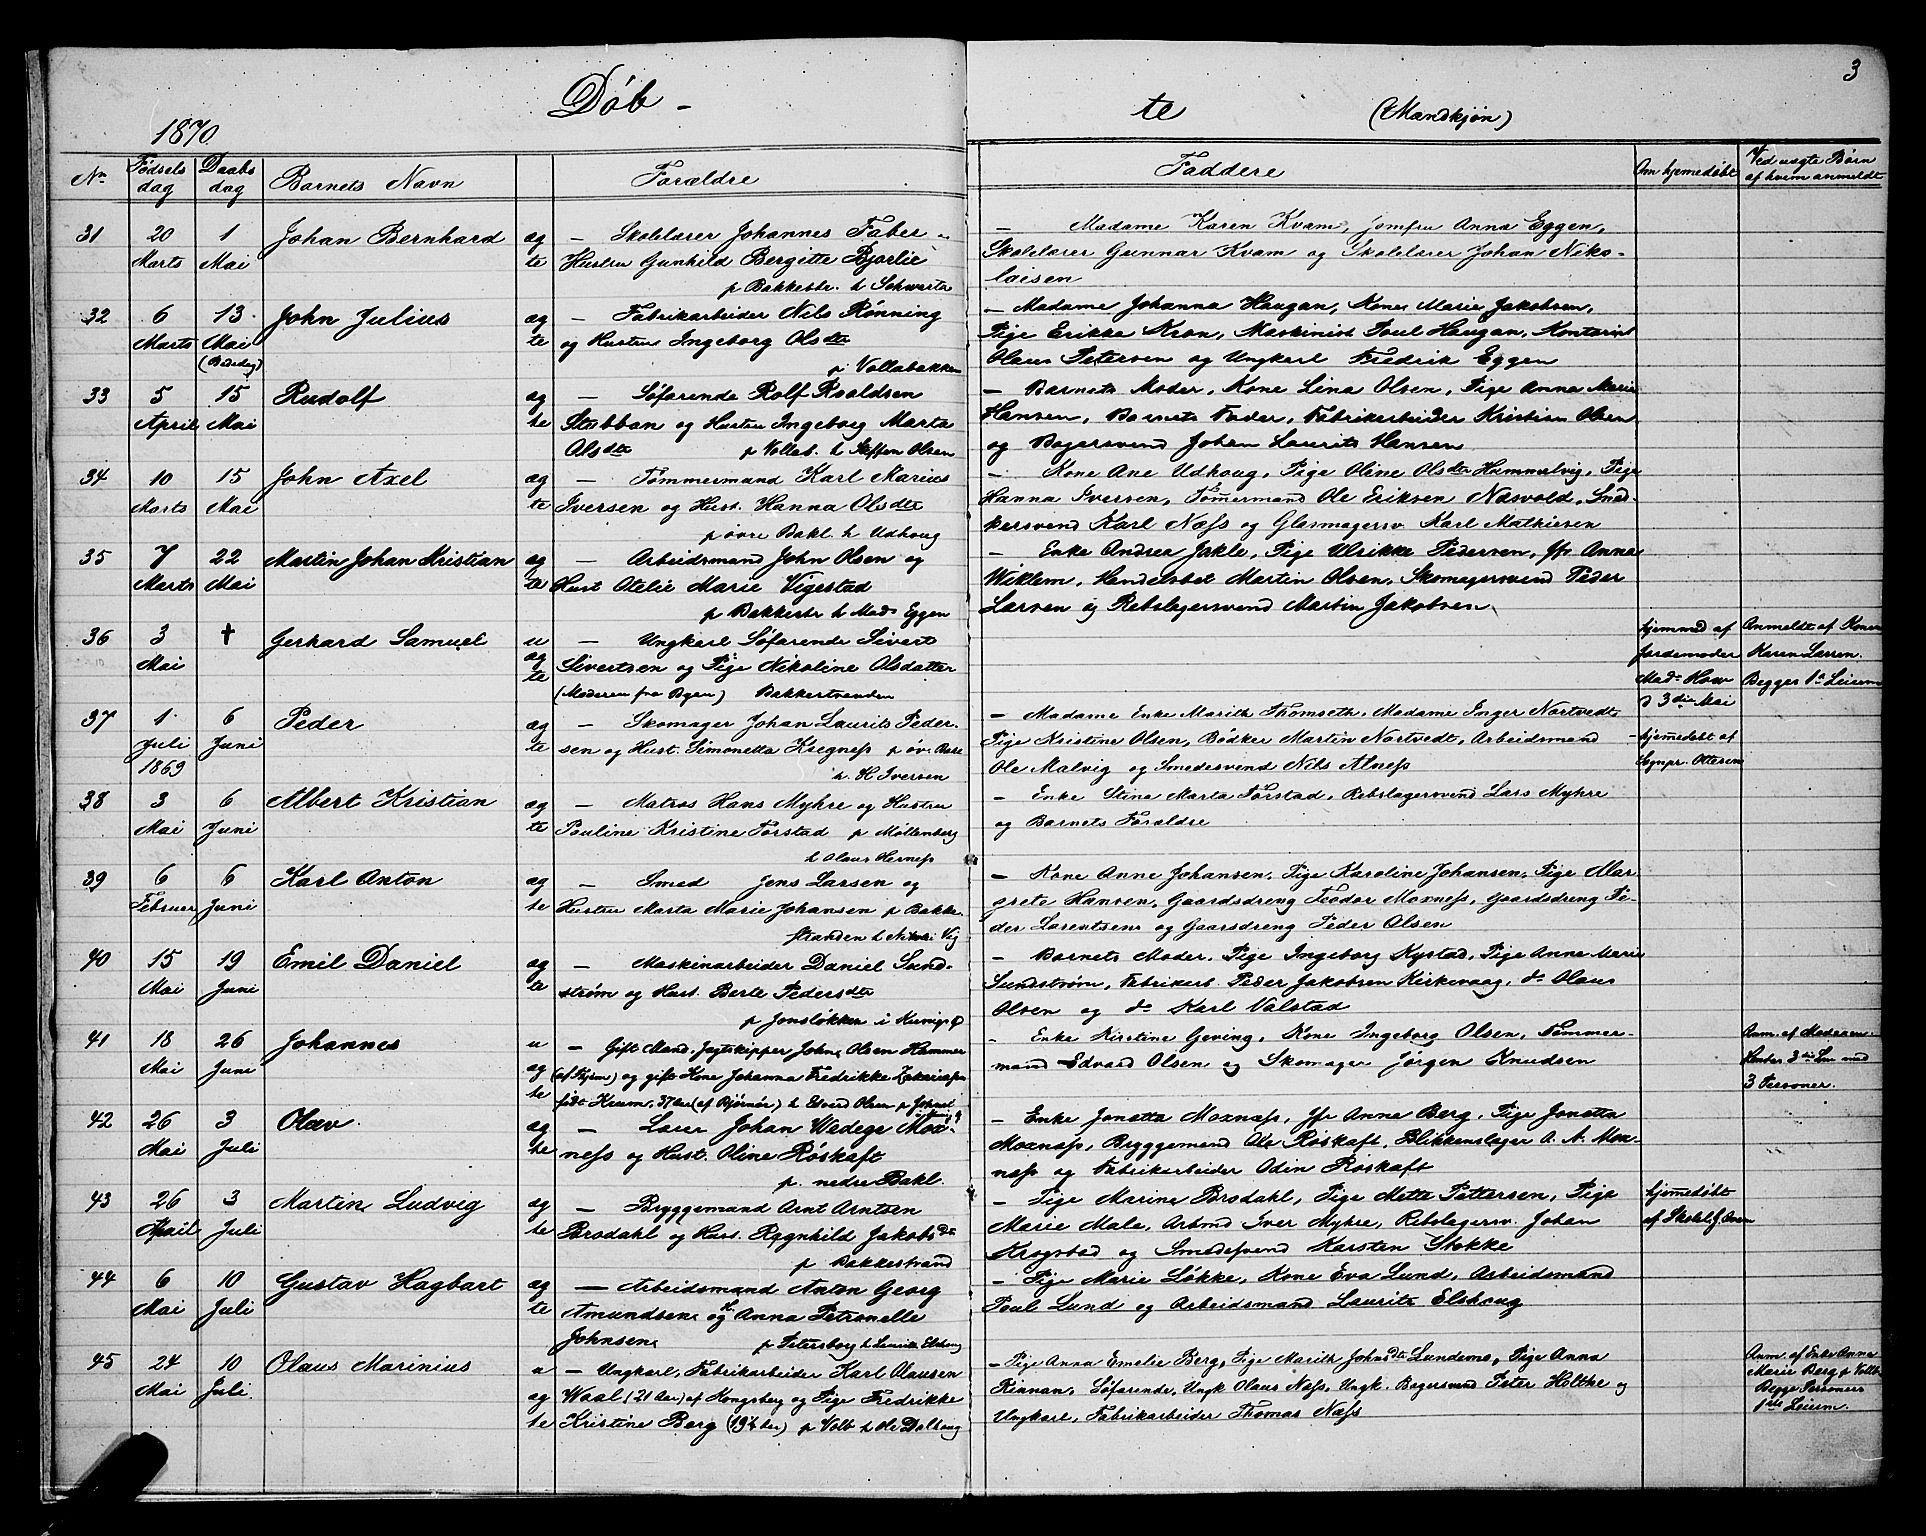 3
Døb - te (Mandkjøn)
1870
No Fødsels dag Daabs dag Barnets Navn Forældre Faddere Om hjemedøbt Ved uægte Børn af hvem anmeldt
31 20 Marts 1 Mai Johan Bernhard ægte
— Skolelærer Johannes Faber
Hustru Gunhild Bergitte Bjørlie
p Bakkestr. h Schwarts
— Madame Karen Kvam, Jomfru Anna Eggen,
Skolelærer Gunnar Kvam og Skolelærer Johan Niko-
laisen
32 6 Marts 13 Mai (Bededag) John Julius ægte
— Fabrikarbeider Nils Rønning
og Hustru Ingeborg Olsdtr
p Vollabakken
— Madame Johanna Haugan, Kone Marie Jakobsen,
Pige Erikka Kron, Maskinist Poul Haugan, Kontorist
Olaus Petersen og Ungkarl Fredrik Eggen
33 5 April 15 Mai Rudolf ægte
— Søfarende Rolf Roaldsen
Stubban og Hustru Ingeborg Marta
Olsdtr p Vollab. h Steffen Olsen
— Barnets Moder, Kone Lina Olsen, Pige Anna Marie
Hansen, Barnets Fader, Fabrikarbeider Kristian Olsen
og Bagersvend Johan Laurits Hansen
34 10 Marts 15 Mai John Axel ægte
— Tømmermand Karl Marius
Iversen og Hust. Hanna Olsdtr
p øvre Bakl. h Udhoug
— Kone Ane Udhoug, Pige Oline Olsdtr Hammelvig, Pige
Hanna Iversen, Tømermand Ole Eriksen Næsvold, Sned-
kersvend Karl Næss og Glasmagersv. Karl Mathiesen
35 7 Marts 22 Mai Martin Johan Kristian ægte
— Arbeidsmand John Olsen og
Hust Otelie Marie Vigestad
p Bakkestr h Mads Eggen
— Enke Andrea Jakle, Pige Ulrikke Pedersen, Jfr Anna
Wiklem, Handelsbet Martin Olsen, Skomagersvend Peder
Larsen og Rebslagersvend Martin Jakobsen
36 3 Mai † Gerhard Samuel uægte
— Ungkarl Søfarende Sivert
Sivertsen og Pige Nikoline Olsdatter
(Moderen fra Byen) Bakkestranden
hjemmed af
Jordemoder
Mad. How
d 3die Mai
Anmeldt af Konen
Karen Larsen.
Begges 1ste Leierm
37 1 Juli 1869 6 Juni Peder ægte
— Skomager Johan Laurits Peder-
sen og Hust. Simonetta Kregness p øv. Bakl
h. H Iversen
— Madame Enke Marith Thomseth, Madame Inger Nortvedt,
Pige Kristine Olsen, Bødker Martin Nortvedt, Arbeidsmand
Ole Malvig og Smedesvend Nils Alness
— hjemedøbt af
Sognpr. Ottesen
38 3 Mai 6 Juni Albert Kristian ægte
— Matros Hans Myhre og Hustru
Pauline Kristine Forstad p Møllenberg
h Olaus Herness
— Enke Stina Marta Forstad, Rebslagersvend Lars Myhre
og Barnets Forældre
39 6 Februar 6 Juni Karl Anton ægte
— Smed Jens Larsen og
Hustru Marta Marie Johansen p Bakke-
stranden h Nikolai Vig
— Kone Anne Johansen, Pige Karoline Johansen, Pige Mar-
grete Hansen, Gaardsdreng Teodor Moxness, Gaardsdreng Pe-
der Lorentsen og Gaarsdreng Peder Olsen
40 15 Mai 19 Juni Emil Daniel ægte
— Maskinarbeider Daniel Sund-
strøm og Hust. Berte Pedersdtr
p Jonsløkken i
— Barnets Moder. Pige Ingeborg Nystad, Pige Anna Marie
Sundstrøm, Fabrikarb. Peder Jakobsen Kirkevaag, do Olaus
Olsen og do Karl Valstad
41 18 Mai 26 Juni Johannes uægte
— Gift Mand, Jagtskipper John Olsen Hammer
(af Hjem) og gift Kone Johanna Fredrikke Zakariassen
født Krum, 37 Aar (af Bjørnør) h Edvard Olsen p
— Enke Kirstine Geving, Kone Ingeborg Olsen, Tømmer-
mand Edvard Olsen og Skomager Jørgen Knudsen
Anm. af Moderen.
3die med
3 Personer.
42 26 Mai 3 Juli Olav ægte
— Laier Johan Wedege Mox-
ness og Hust. Oline Røskaft
p. nedre Bakl.
— Enke Jonetta Moxness, Jfr Anna Berg, Pige Jonetta
Moxness, Bryggemand Ole Røskaft, Blikkenslager A. A. Mox-
ness og Fabrikarbeider Odin Røskaft
43 26 April 3 Juli Martin Ludvig ægte
— Bryggemand Arnt Arntsen
Brodahl og Hust. Ragnhild Jakobsdtr
p Bakkestrand
— Pige Marine Brodahl, Pige Mette Pettersen, Pige
Marie Male, Arbmd Iver Myhre, Rebslagersv. Johan
Krogstad og Smedesvend Karsten Stokke
hjemedøbt
af Skolel.
44 6 Mai 10 Juli Gustav Hagbart ægte
— Arbeidsmand Anton Georg
Amundsen og H Anna Petronelle
Johnsen p Petersborg h Laurits Elshoug
— Pige Marie Løkke, Kone Eva Lund, Arbeidsmand
Poul Lund og Arbeidsmand Laurits Elshoug
45 24 Mai 10 Juli. Olaus Marinius uægte
— Ungkarl, Fabrikarbeider Karl Olausen
Waal (21 Aar) af Kongsberg og Pige Fredrikke
Kristine Berg (19½ Aar) p Volb h Ole Dalhaug
— Pige Anna Emelie Berg, Pige Marith Johnsdtr Lundemo, Pige Anna
Rinnan, Søfarende, Ungk Olaus Næss, Ungk. Bagersvend Peter Holthe og
Ungkarl, Fabrikarbeider Thomas Næss
Anm. af Enke Anna
Marie Berg p Vollb.
Begge Personers
1ste Leierm.